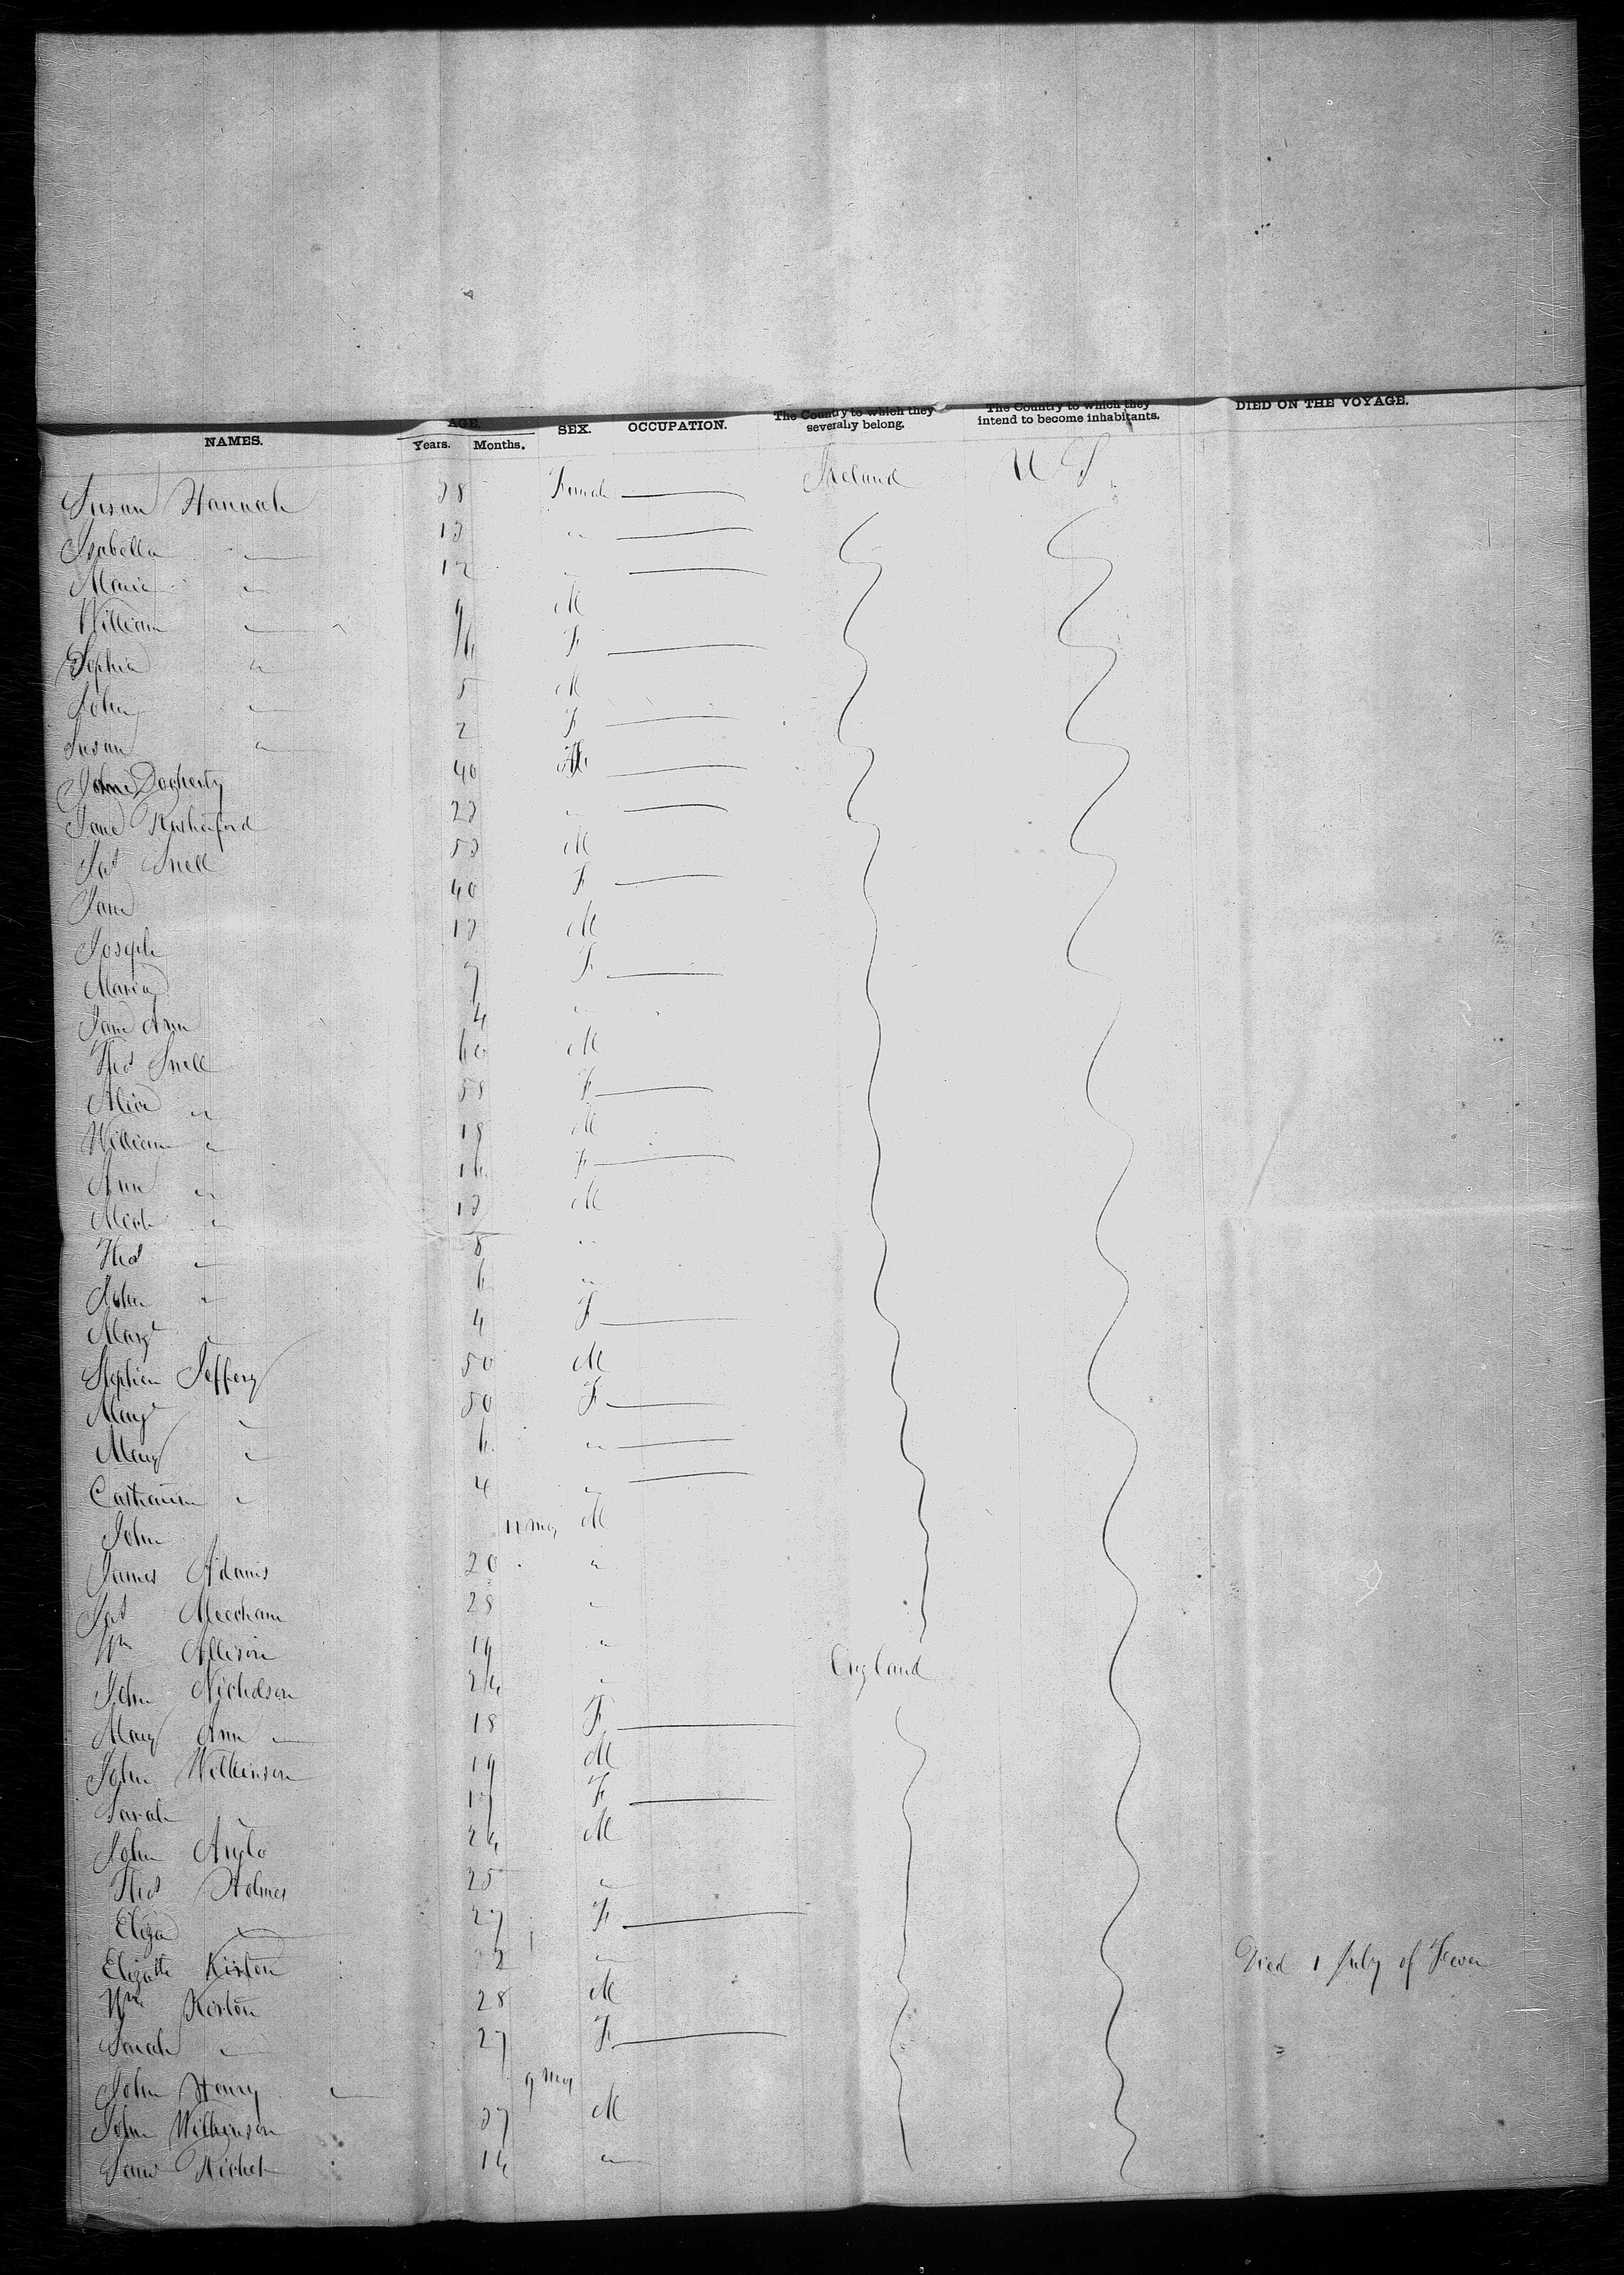 NAMES. AGE. Years. Months. SEX. OCCUPATION. The Country to which they severally belong. The Country to which they intend to become inhabitants. DIED ON THE VOYAGE.
Susan Hannah 38 Female Ireland U S
Isabella " 13 "
Maria " 12 "
William " 9 M
Sophia " F
John " 5 M
Susan " 2 F
Docherty 40
Jane Rutherford 23 "
Jas Snell 53 M
Jane 40 F
Joseph 13 M
Maria 7 F
Jane Ann 4 "
Thos Snell 60 M
Alice " 58 F
William " 18 M
Ann " 16 F
" 13 M
Thos " 8 "
John " 6 "
Margt " 4 F
Stephen Jeffery 50 M
Margt " 50 F
Mary " 6 "
Catharine " 4 "
John 11 mos M
James Adams 20 "
Jas Meecham 28 "
Wm Allison 19 "
John Nicholson 24 " England
Mary Ann " 18 F
John Wilkinson 19 M
Sarah " 17 F
John 24 M
Thos Holmes 25 "
Eliza " 27 F
Elizath Kirton " Died 1 July of Fever
Wm Kirton 28 M
Sarah " 27 F
John Henry " 9 mos
John Wilkinson 37 M
"